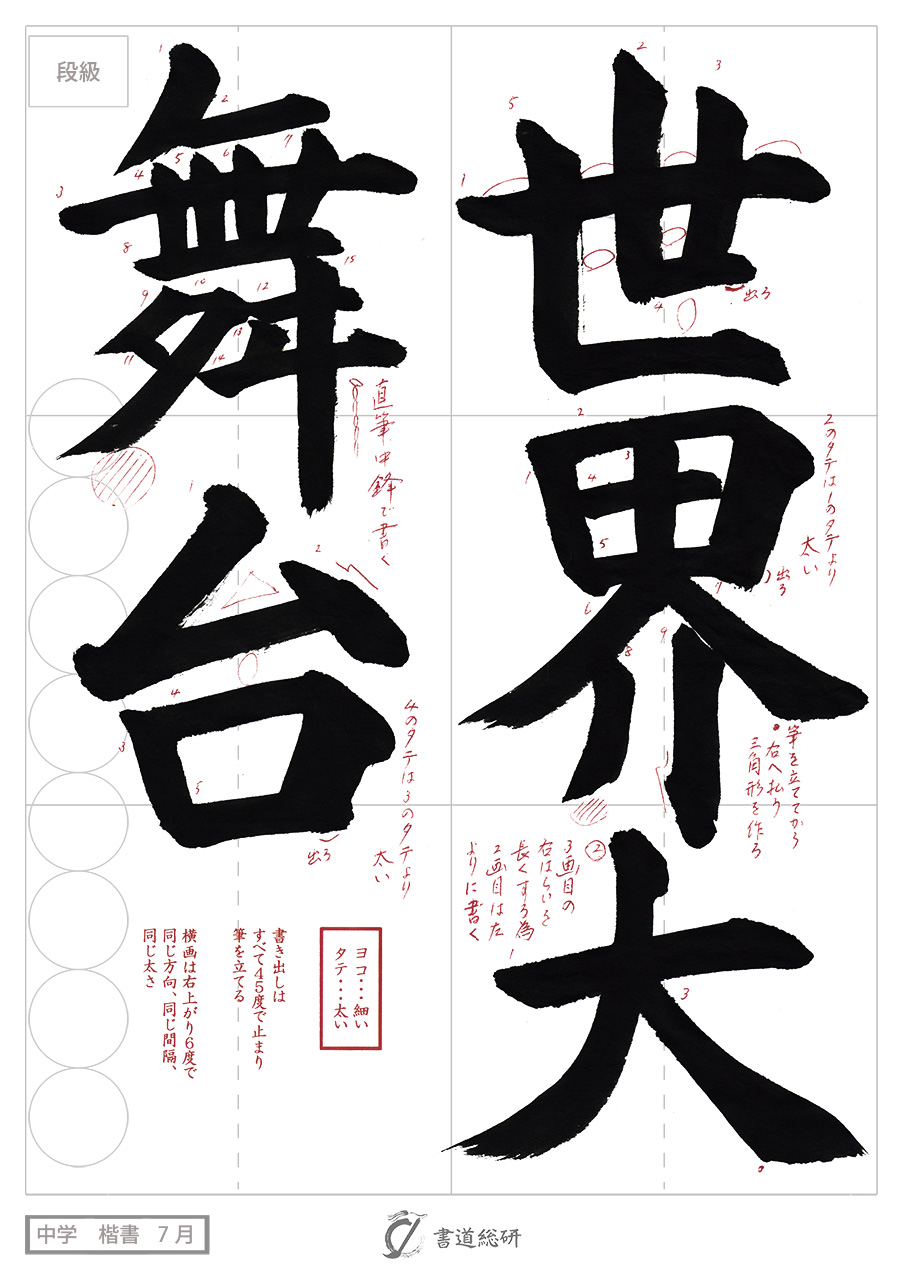 世界大
舞台
段級
出る
2のタテは1のタテより
太い
出る
筆を立ててから
右へ払う
三角形を作る
②
3画目の
右はらいを
長くする為
2画目は左
よりに書く
直筆中鋒で書く
4のタテは3のタテより
太い
出る
ヨコ…細い
タテ…太い
書き出しは
すべて45度で止まり
筆を立てる
横画は右上がり6度で
同じ方向、同じ間隔、
同じ太さ
中学 楷書 7月
書道総研